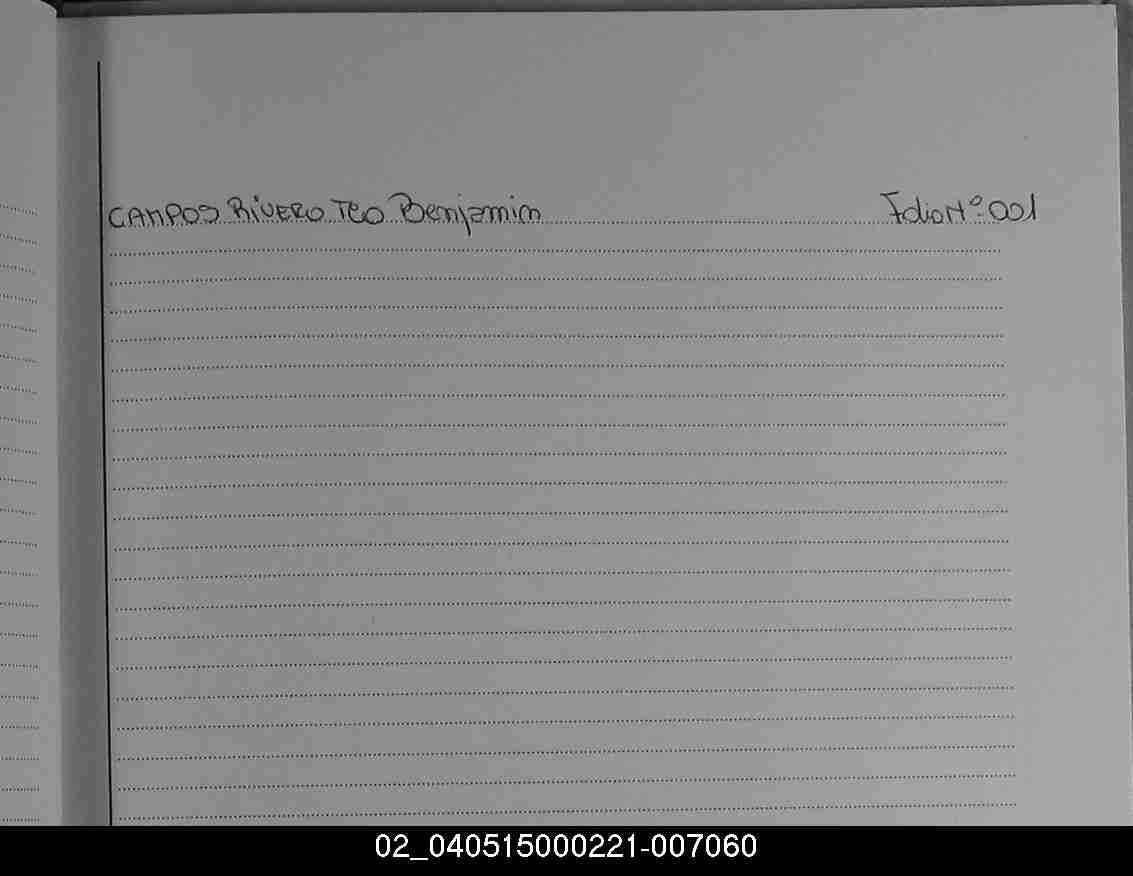 CAMPOS RiVERO Teo Benjamin Folio Nº 001
02_040515000221-007060